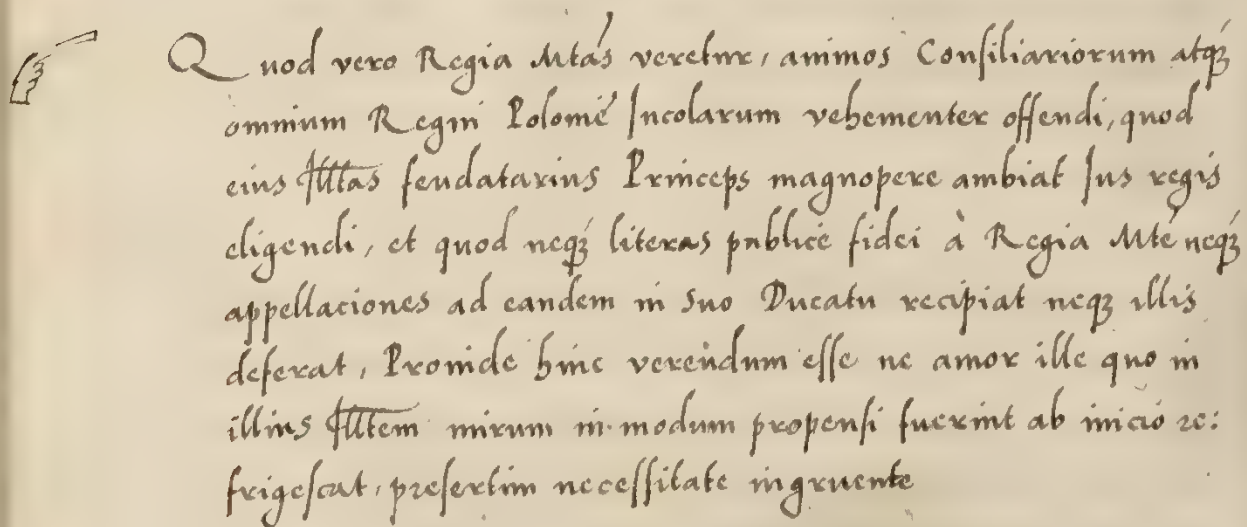 Quod vero Regia Mtas veretur, animos Consiliariorum atqꝫ
omnium Regni Polonie Incolarum vehementer offendi, quod
eius Illtas feudatarius Princeps magnopere ambiat Jus regis
eligendi, et quod neqꝫ literas publice fidei à Regia Mte neqꝫ
appellaciones ad eandem in suo Ducatu recipiat neqꝫ illis
deferat, Proinde hinc verendum esse ne amor ille quo in
illius Illtem mirum in modum propensi fuerint ab inicio re:
frigescat, presertim necessitate ingruente